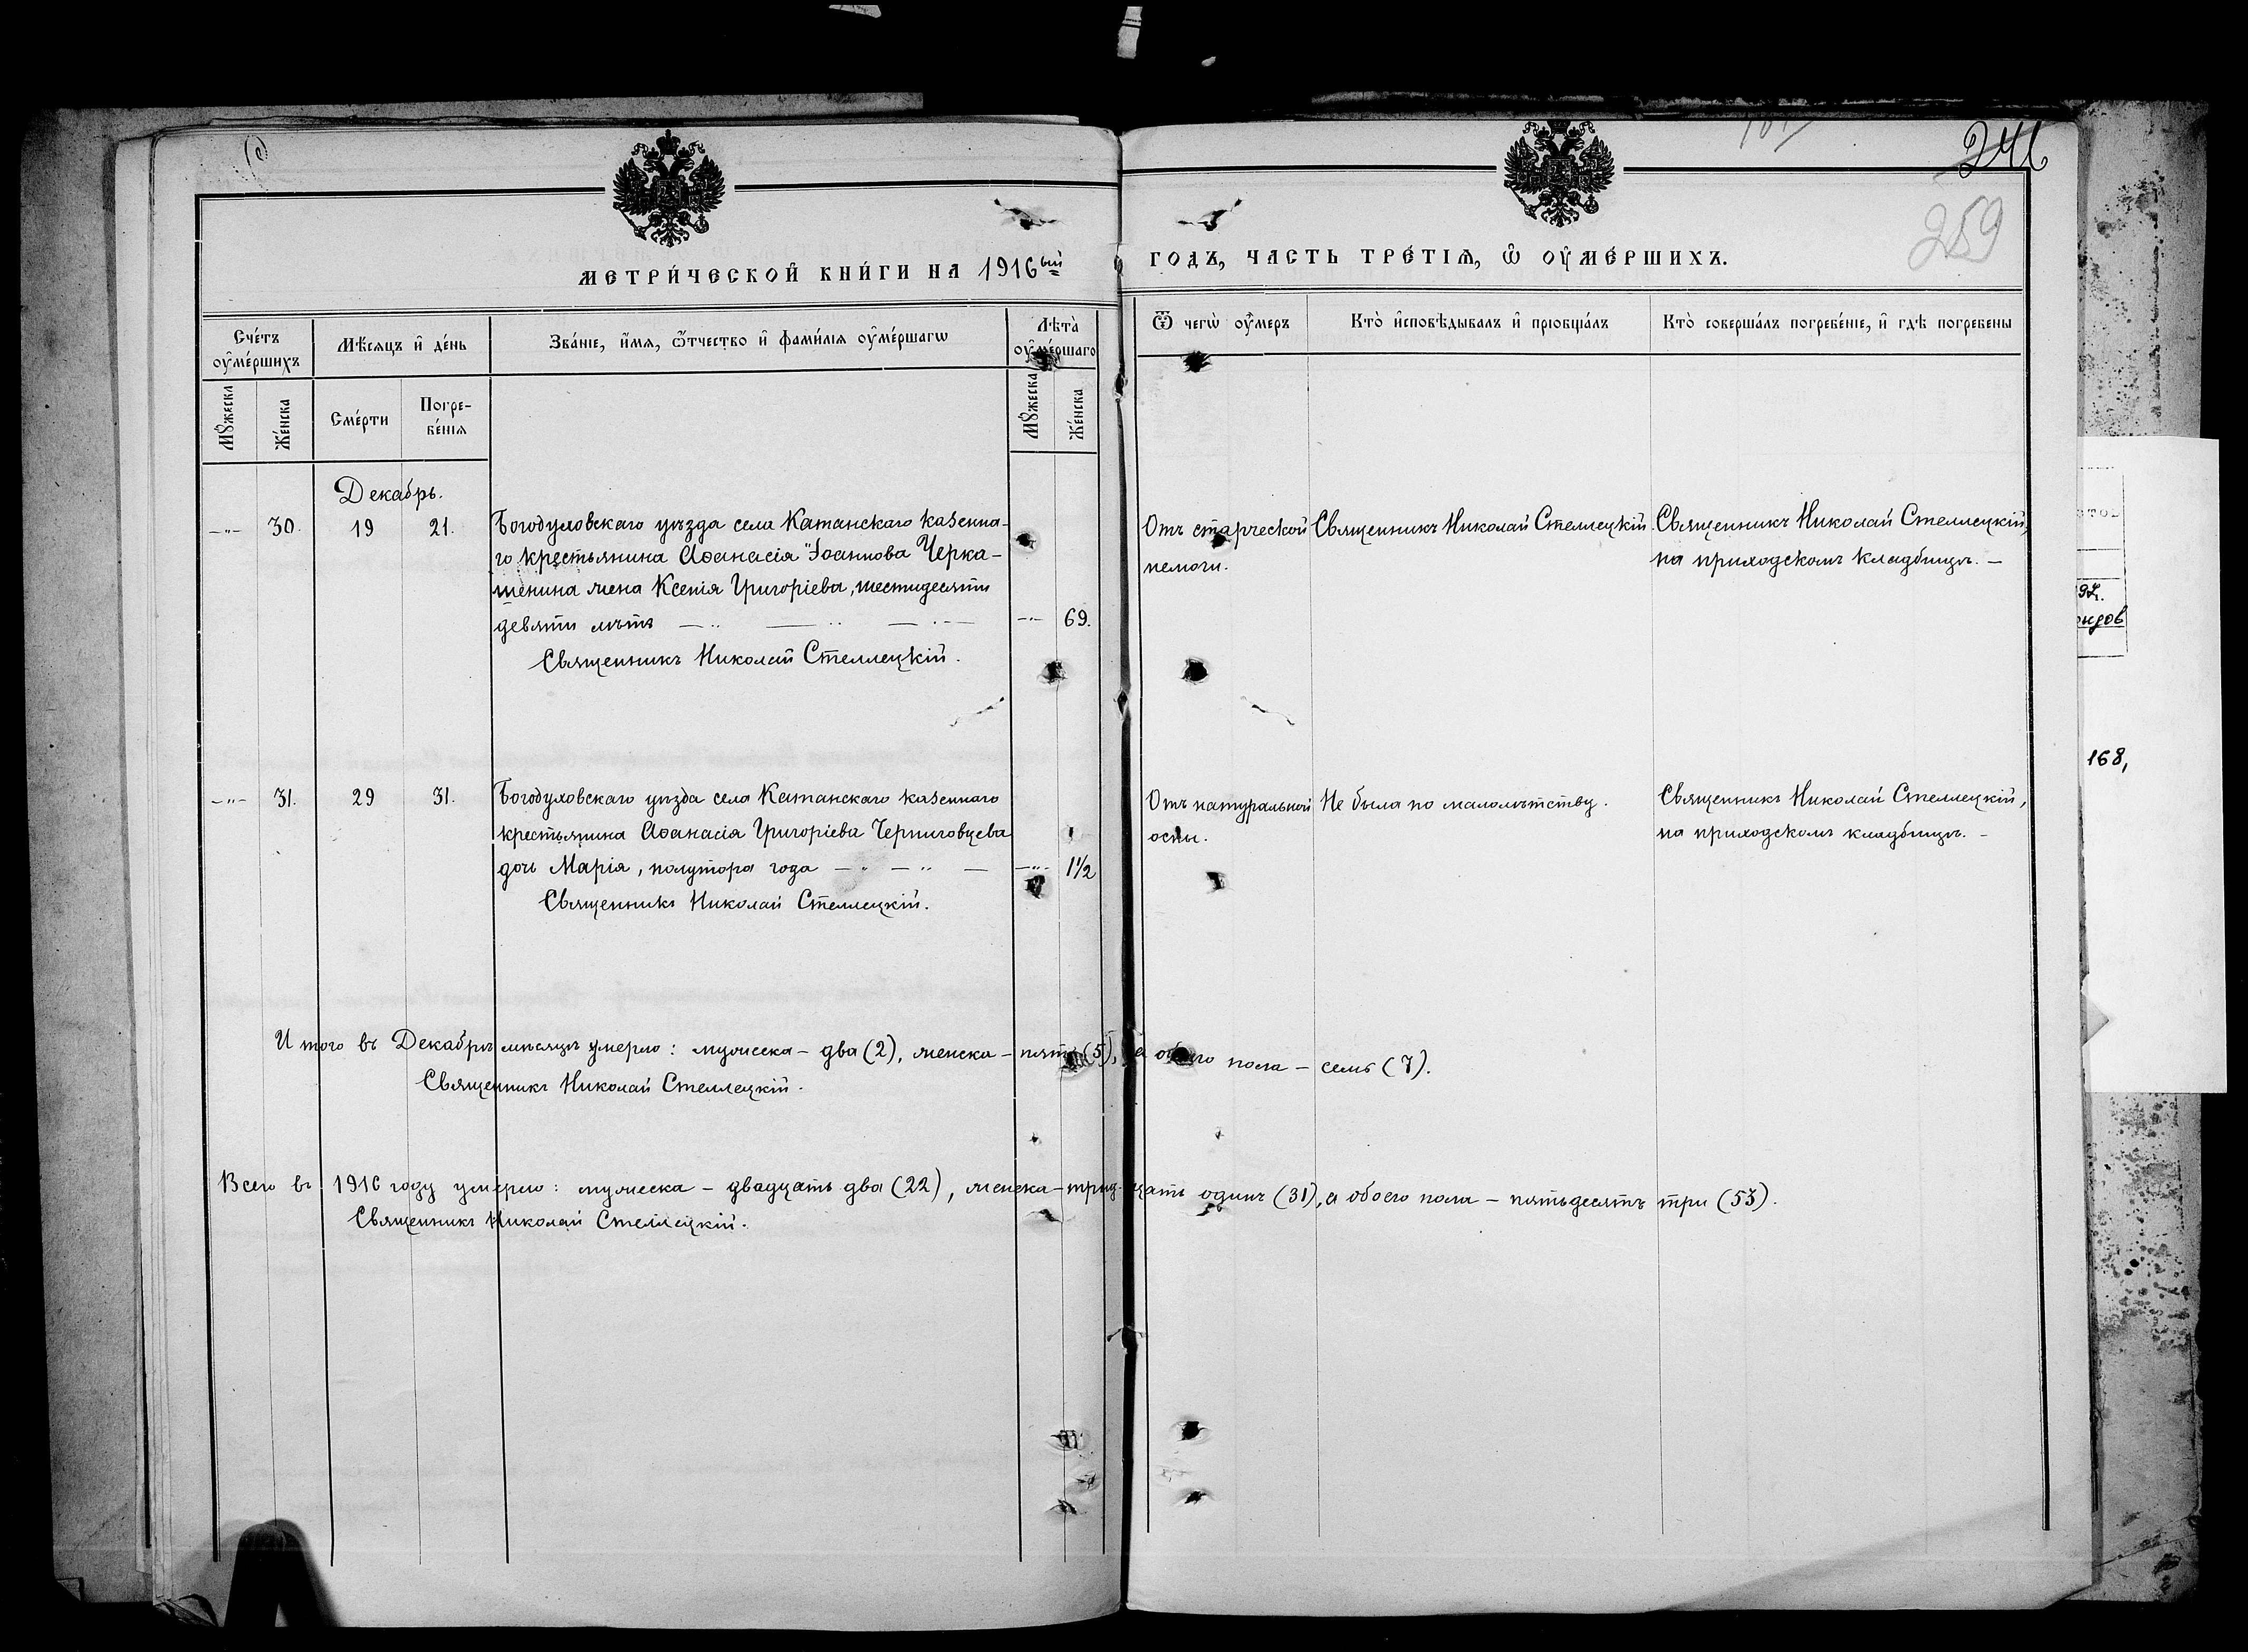 246
259
МЕТРИ́ЧЕСКОЙ КНИ́ГИ НА 1916ый
ГОДЪ, ЧАСТЬ ТРЕ́ТІѦ, Ѡ ОУМЕ́РШИХЪ.
Сче́тъ оуме́ршихъ
Мѣ́сѧцъ и де́нь
Зва́ніе, и́мѧ, ѿтчество и фами́лїѧ оуме́ршагѡ
Лѣта̀ оуме́ршаго
Ѿ чегѡ̀ оу́меръ
Кто̀ исповѣ́дывалъ и прїобща́лъ
Кто̀ соверша́лъ погребе́нїе, и гдѣ̀ погребены
Мꙋ́жеска
Же́нска
Сме́рти
Погре-
бе́нїѧ
Мꙋ́жеска
Же́нска
Декабрь.
-"- 30. 19 21. Богодуховскаго уѣзда села Катанскаго казенна-
го крестьянина Аѳанасія Іоаннова Черка-
шенина жена Ксенія Григоріева, шестидесяти
девяти лѣтъ -"- 69.
Священникъ Николай Стеллецкій.
Отъ старческой
немочи.
Священникъ Николай Стеллецкій
Священникъ Николай Стеллецкій,
на приходскомъ кладбищѣ. -
-"- 31. 29 31. Богодуховскаго уѣзда села Катанскаго казеннаго
крестьянина Аѳанасія Григоріева Черниговцева
дочь Марія, полутора года -"- 1½
Священникъ Николай Стеллецкій.
Отъ натуральной
оспы.
Не была по малолѣтству.
Священникъ Николай Стеллецкій,
на приходскомъ кладбищѣ. -
Итого въ Декабрѣ мѣсяцѣ умерло: мужеска - два (2), женска - пять (5), а обоего пола - семь (7).
Священникъ Николай Стеллецкій.
Всего въ 1916 году умерло: мужеска - двадцать два (22), женска - тридцать одинъ (31), а обоего пола - пятьдесятъ три (53).
Священникъ Николай Стеллецкій.
168,